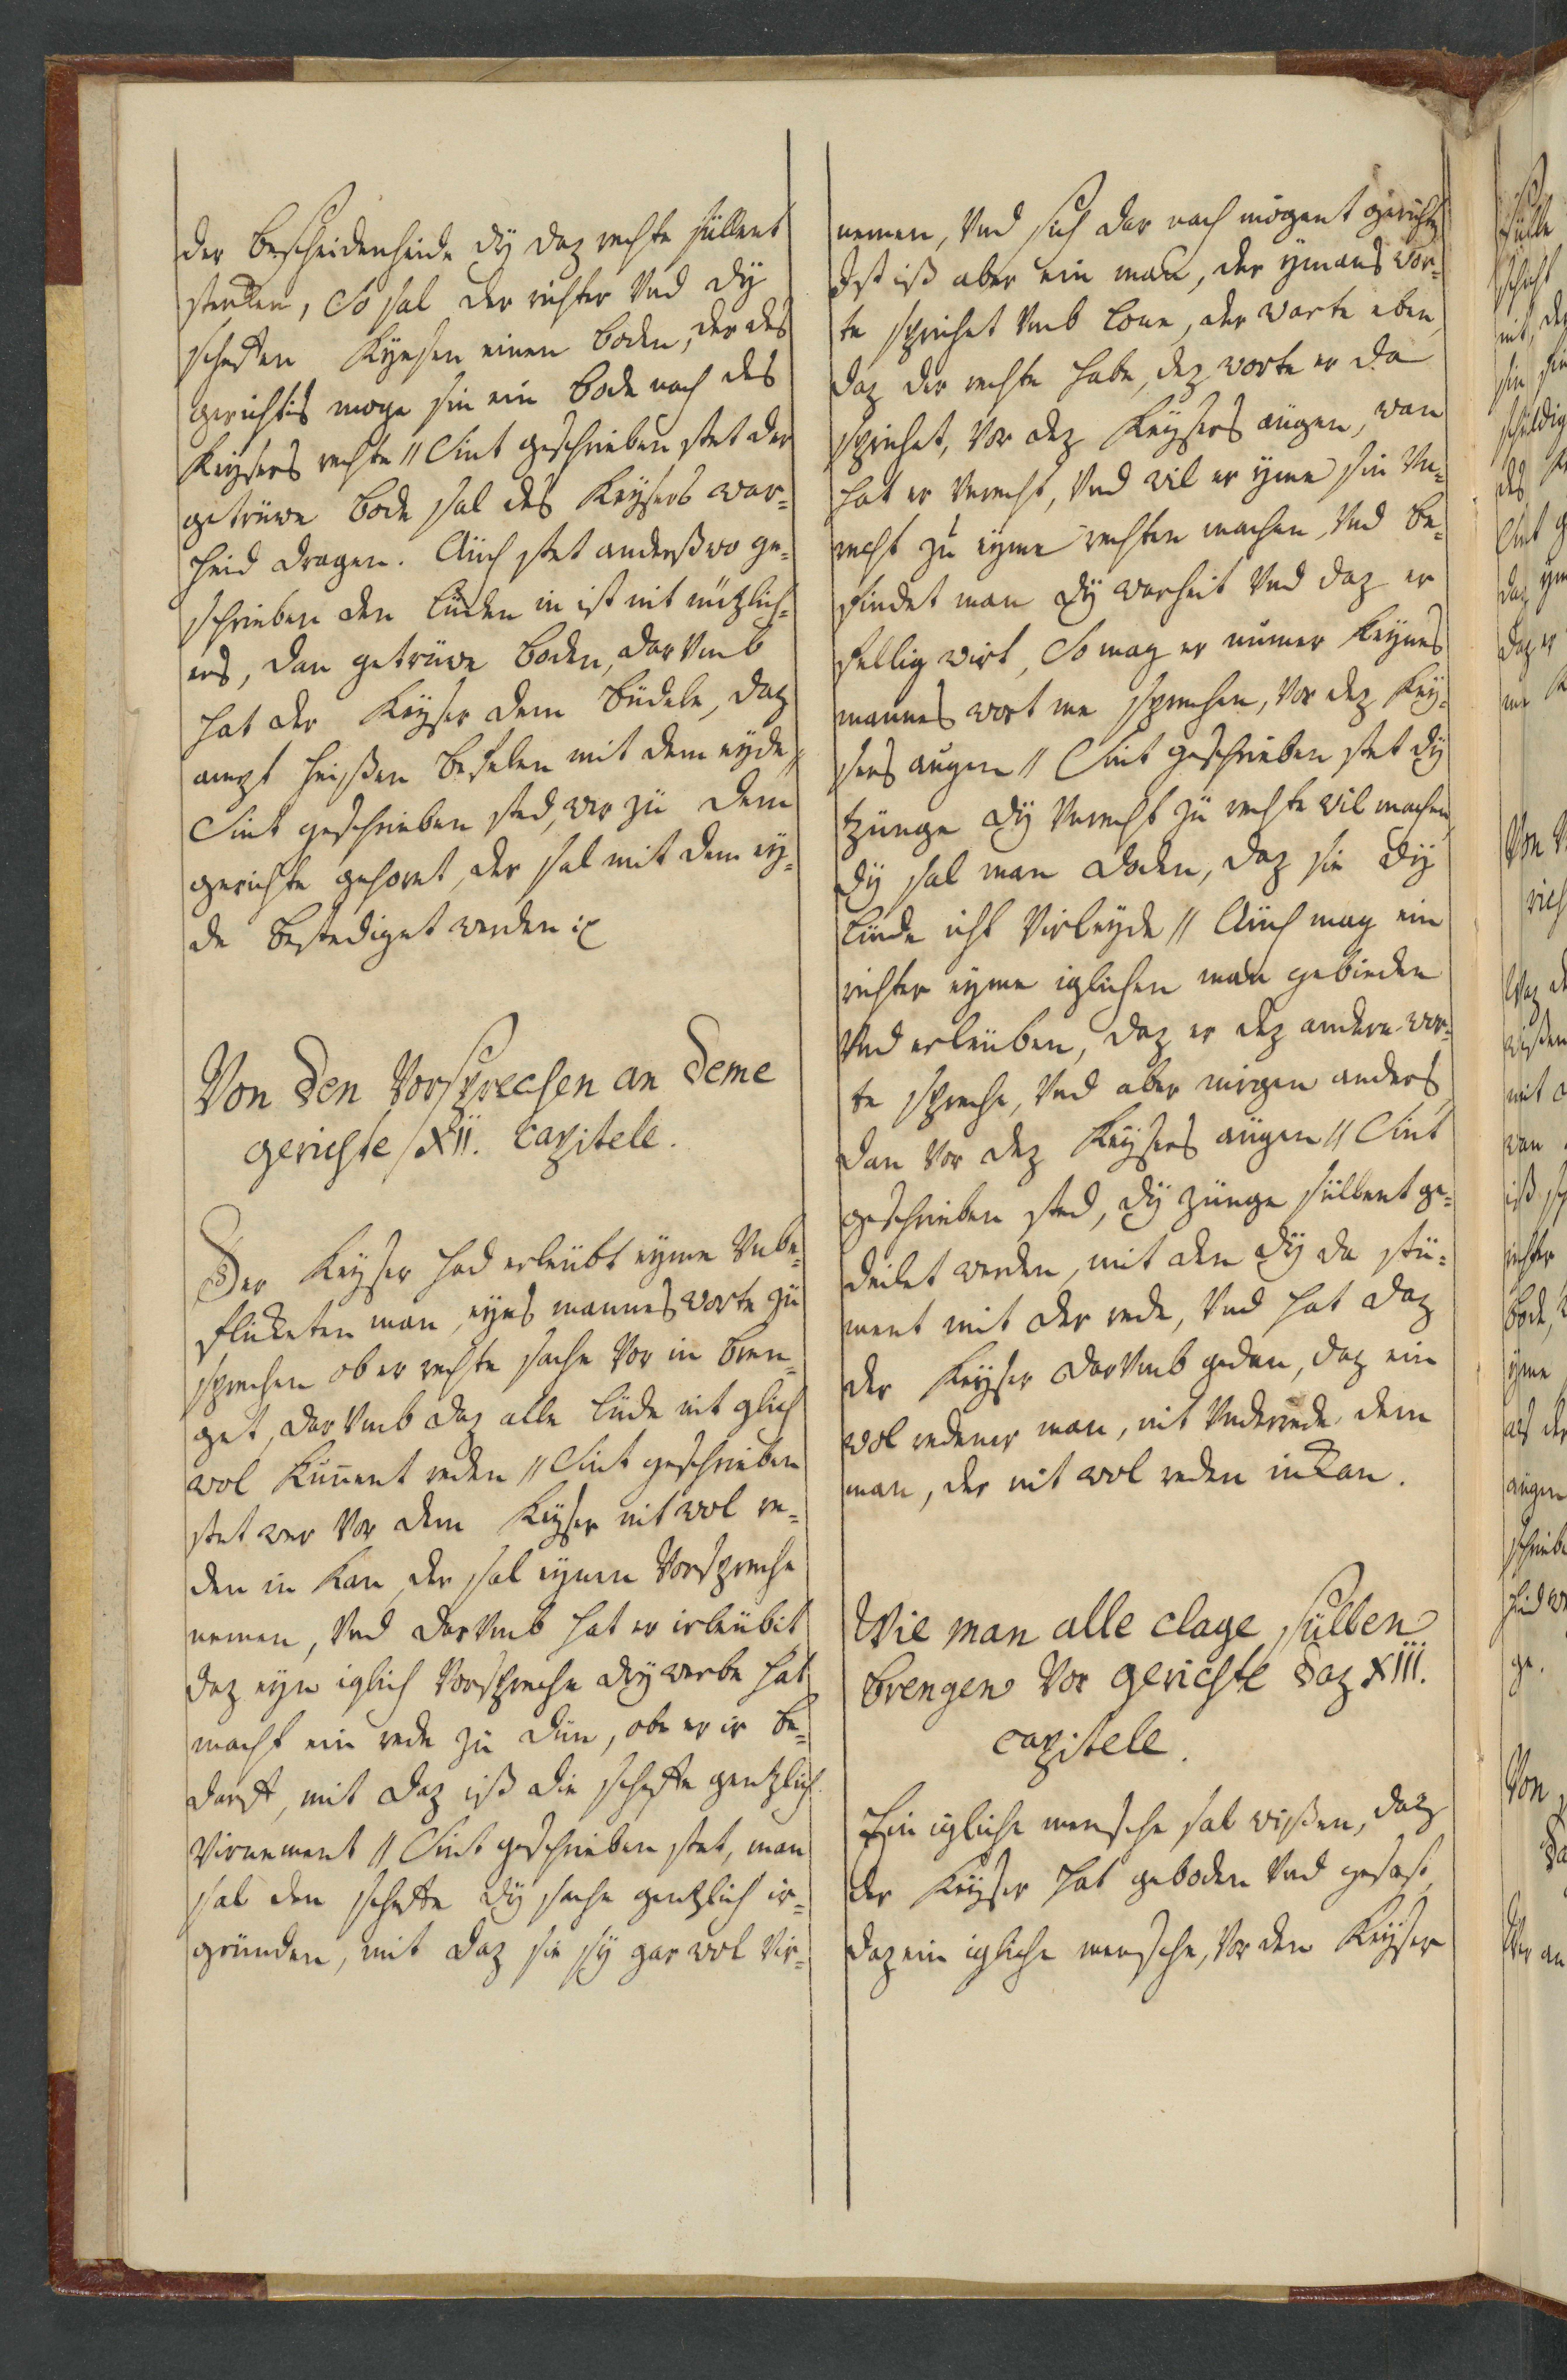 der bescheidenheide dÿ daz rechte süllent
sterken, So sal der richter Vnd dÿ
scheffen Kÿesen einen boden, der des
gerichtis moge sin ein bode nach des
Keÿsers rechte // Sint geschrieben stet der
getrüwe bode sal des Keÿsers war-
heid dragen. Aüch stet anderßwo ge-
schrieben den lüden in ist nit nützlich-
ers, dan getrüwe boden, dar Vmb
hat der Keÿser dem büdele, daz
ampt heißen befelen mit dem eyde //
Sint geschrieben sted, wer zü dem
gerichte gehoret, der sal mit dem eÿ-
de bestediget werden

Von den Vorsprechen an deme
gerichte / XII. capitele.

Der Keÿser had erleübt eÿme Vnbe-
fleketen man, eÿns mannes worte zü
sprechen ob er rechte sache Vor in bren-
get, dar Vmb daz alle lüde nit glich
wol Künnent reden // Sint geschrieben
stet wer Vor dem Keÿser nit wol re-
den in kan, der sal eÿnen Vorspreche
nemen, Vnd dar Vmb hat er irleübit
daz eÿn iglich Vorspreche drÿ werbe hat
macht ein rede zü dün, obe er ir be-
darff, mit daz iß die scheffe gentzlich
Virnement // Sint geschrieben stet, man
sal den scheffe dÿ sache gentzlich ir-
gründen, mit daz sie sÿ gar wol Vir-

nemen, Vnd sich dar nach mögent gerichte
Ist iß aber ein man, der ÿmans wor-
te sprichet Vmb lone, der warte eben,
daz der rechte habe, dez worte er da
sprichet, Vor dez Keÿsers aügen, wan
hat er Vnrecht, Vnd wil er ÿme sin Vn-
recht zü eÿme rechten machen, Vnd be-
findet man dÿ warheit Vnd daz er
fellig wirt, So mag er nümer keÿnes
mannes wort me sprechen, Vor dez Keÿ-
sers aügen // Sint geschrieben stet dÿ
tzünge dÿ Vnrecht zü rechte wil machen
dÿ sal man doden, daz sie dÿ
lüde icht Virleÿde // Aüch mag ein
richter eÿme iglichen man gebieden
Vnd erleüben, daz er dez andern wor-
te spreche, Vnd aber nirgen anders,
dan Vor dez Keÿsers aügen // Sint
geschrieben sted, dÿ zünge süllent ge-
deilet werden, mit den dÿ da stü-
ment mit der rede, Vnd hat daz
der Keÿser dar Vmb gedan, daz ein
wol redener man, nit Vnderrede dem
man, der nit wol reden inkan.

Wie man alle clage süllen
brengen Vor gerichte daz XIII.
capitele.

Ein igliche mensche sal wißen, daz
der Keÿser hat geboden Vnd gesast,
daz ein igliche mensche, Vor den Keÿser